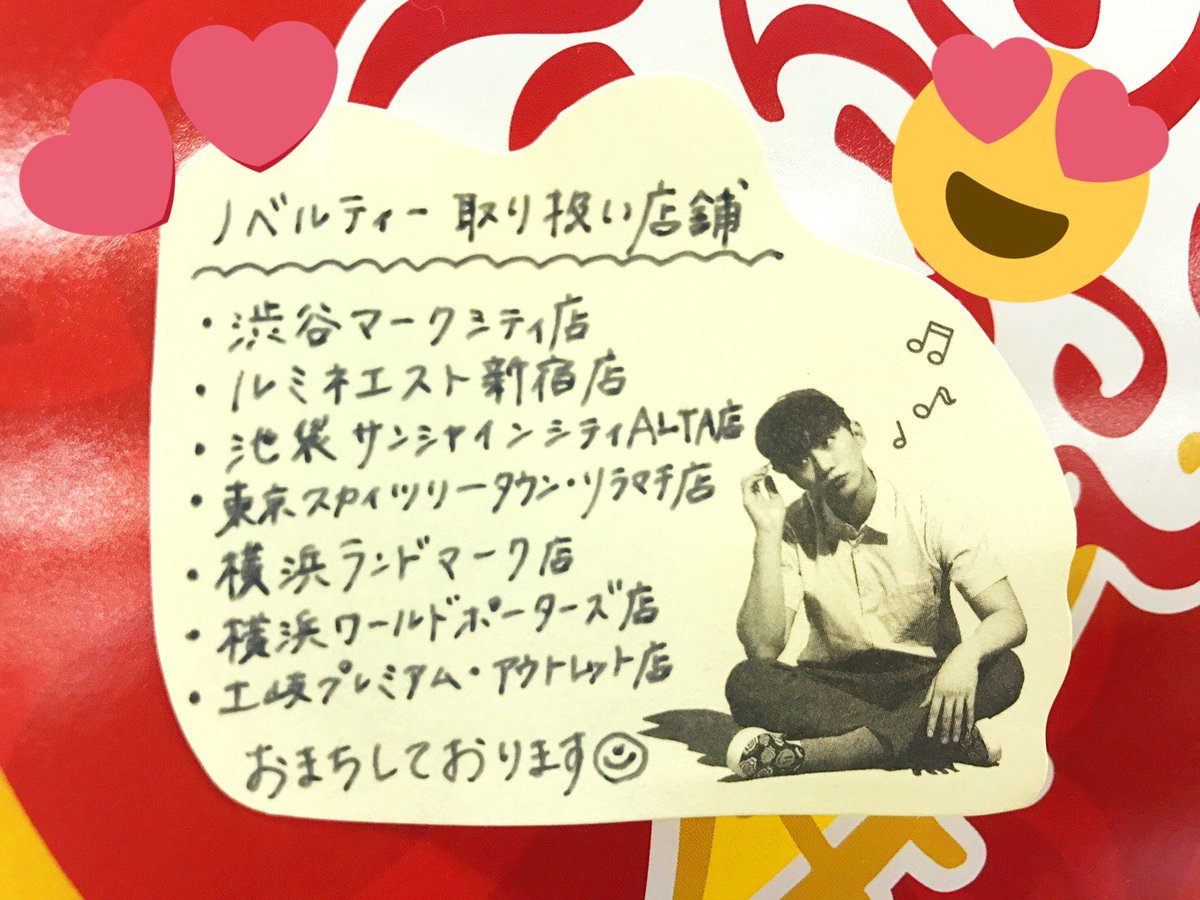 ノベルティー取り扱い店舗
・渋谷マークシティ店
・ルミネエスト新宿店
・池袋サンシャインシティALTA店
・東京スカイツリータウン・ソラマチ店
・横浜ランドマーク店
・横浜ワールドポーターズ店
・土岐プレミアム・アウトレット店
おまちしております